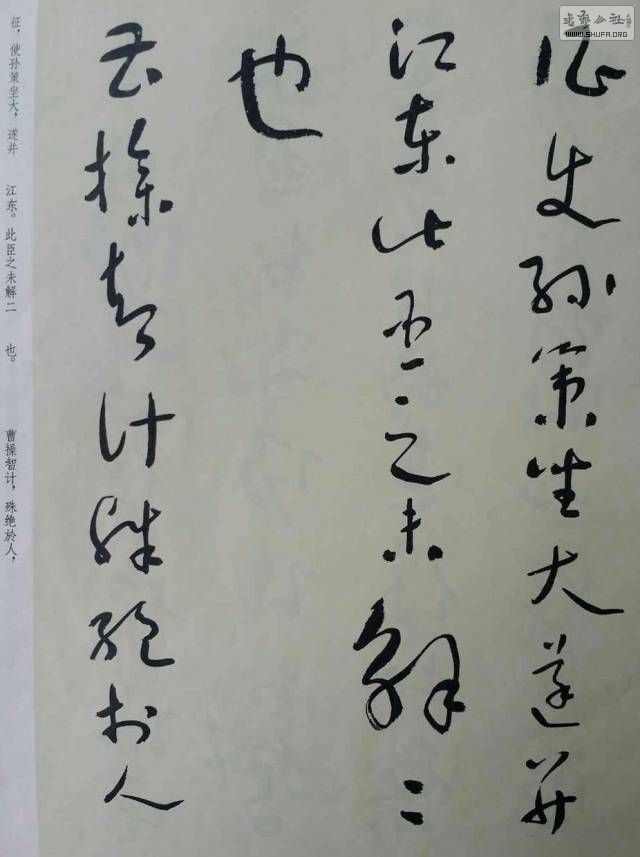 征使孙策坐大遂并
江东此臣之未解二
也
曹操智计殊绝於人
征，使孙策坐大，遂并 江东。此臣之未解二 也。 曹操智计，殊绝於人，
书艺公社
WWW.SHUFA.ORG